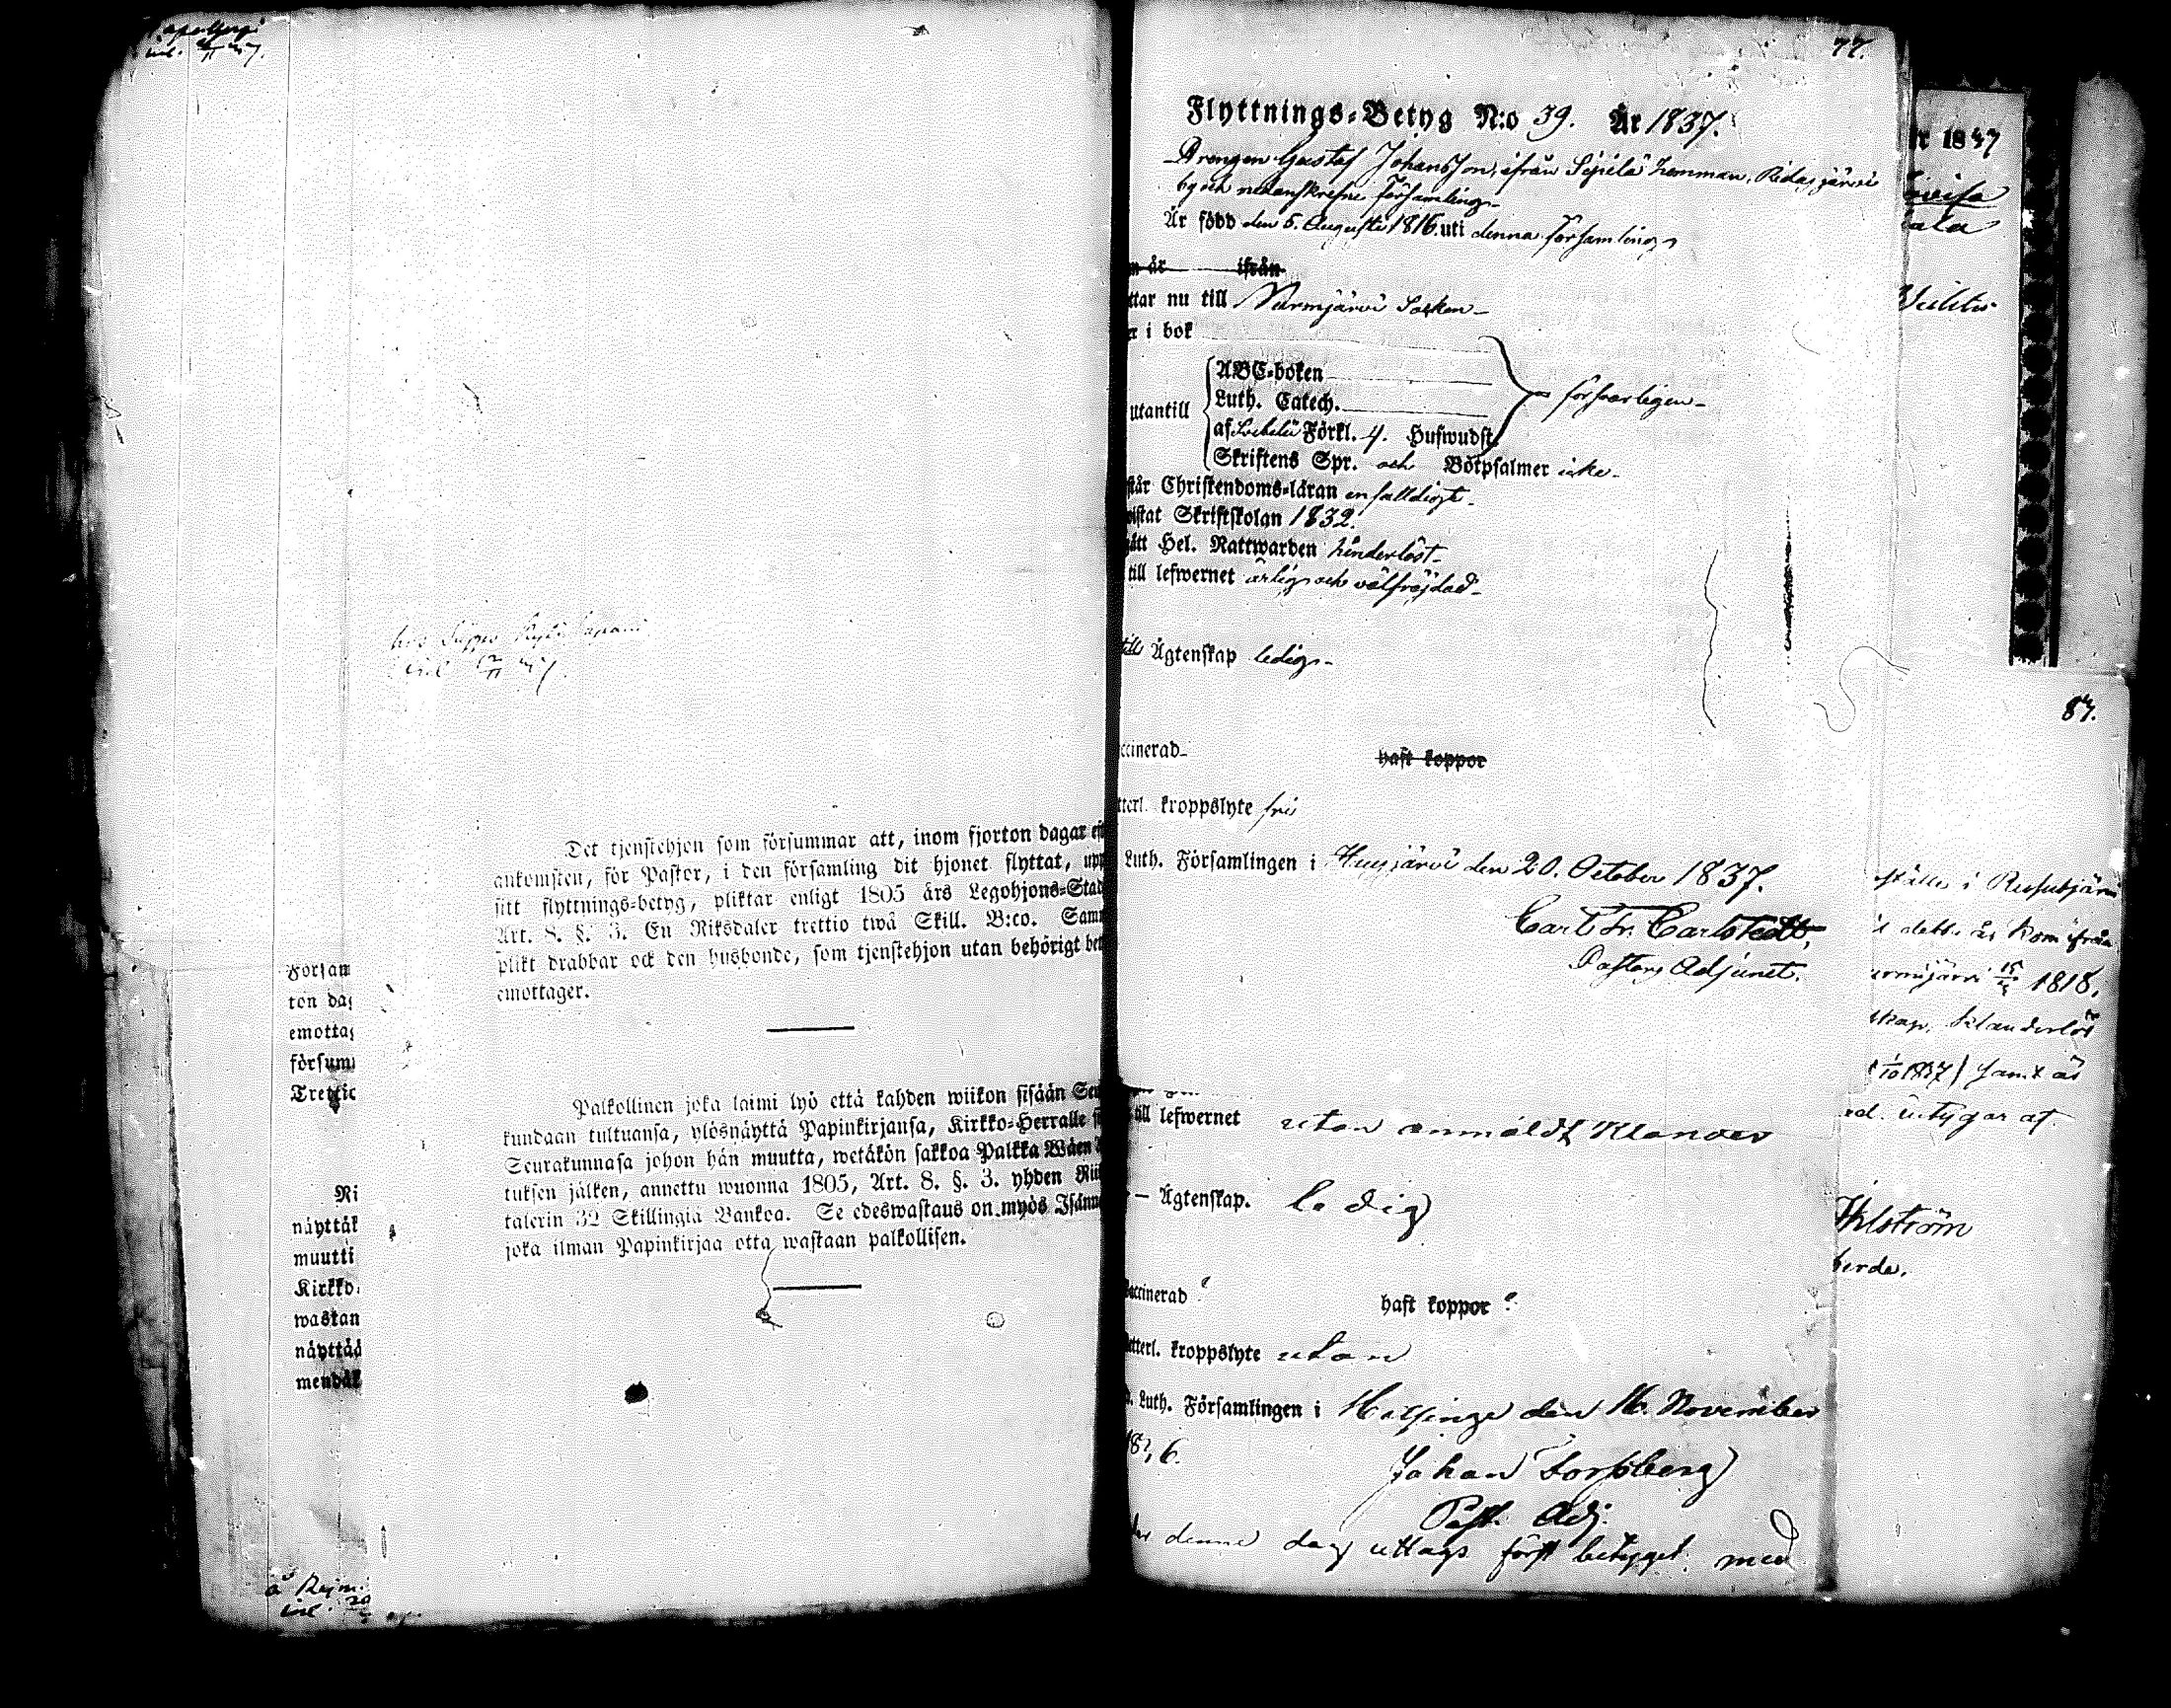 inl.
hos
inl.
Det tjenstehjon som försummar att, inom fjorton dagar eft
ankomsten, för Pastor, i den församling dit hjonet flyttat, upp
sitt flyttnings-betyg, pliktar enligt 1805 års Legohjons-Stad
Art. 8. §. 3. En Riksdaler trettio twå Skill. B:co. Sam
plikt drabbar ock den husbonde, som tjenstehjon utan behörigt bet
emottager.
Palkollinen joka laimi lyö että kahden wiikon sisään Seu
kundaan tultuansa, ylösnäyttä Papinkirjansa, Kirkko-Herralle si
Seurakunnasa johon hän muutta, wetäkön sakkoa Palkka Wäen
tuksen jälken, annettu wuonna 1805, Art. 8. §. 3. yhden Rii
talerin 32 Skillingiä Bankoa. Se edeswastaus on myös Isänn
joka ilman Papinkirjaa otta wastaan palkollisen.
Församl
ton dag
emottag
försum
Trettio
Ni
näyttäk
muutti
Kirkko
wastan
näyttää
mendäk
å Rejm.
inl.
77.
Flyttnings-Betyg N:o 39. År 1837.
Drengen Gustaf Johansson, ifrån Sipilä hemman, Ridasjärvi
by och nedanskrefne församling
Är född den 5. Augusti 1816 uti denna församling
m år ifrån
ttar nu till Nurmijärvi Socken
er i bok
utantill
ABC-boken
Luth. Catech.
af Svebelii Förkl. 4. Hufwudst.
försvarligen
Skriftens Spr. och Botpsalmer icke
står Christendoms-läran enfalldigt
wistat Skriftskolan 1832.
gått Hel. Nattwarden hinderlöst
till lefwernet ärlig och välfrejdad
till Ägtenskap ledig
ccinerad
haft koppor
tterl. kroppslyte fri
Luth. Församlingen i Hausjärvi den 20. October 1837.
Carl Fr. Carlstedt,
Pastors Adjunct.
till lefwernet utan anmäldt Klander
Ägtenskap. ledig
accinerad ?
haft koppor ?
etterl. kroppslyte utan
d. Luth. Församlingen i Helsinge den 16. November
Johan Forssberg
Past. Adj.
denna dag uttags först betyget med
år 1837
87.
ställe i
detta år kom ifrån
urmijärvi 1818,
skap, klanderlös
1/10 1837) samt är
intygar af
Ahlström